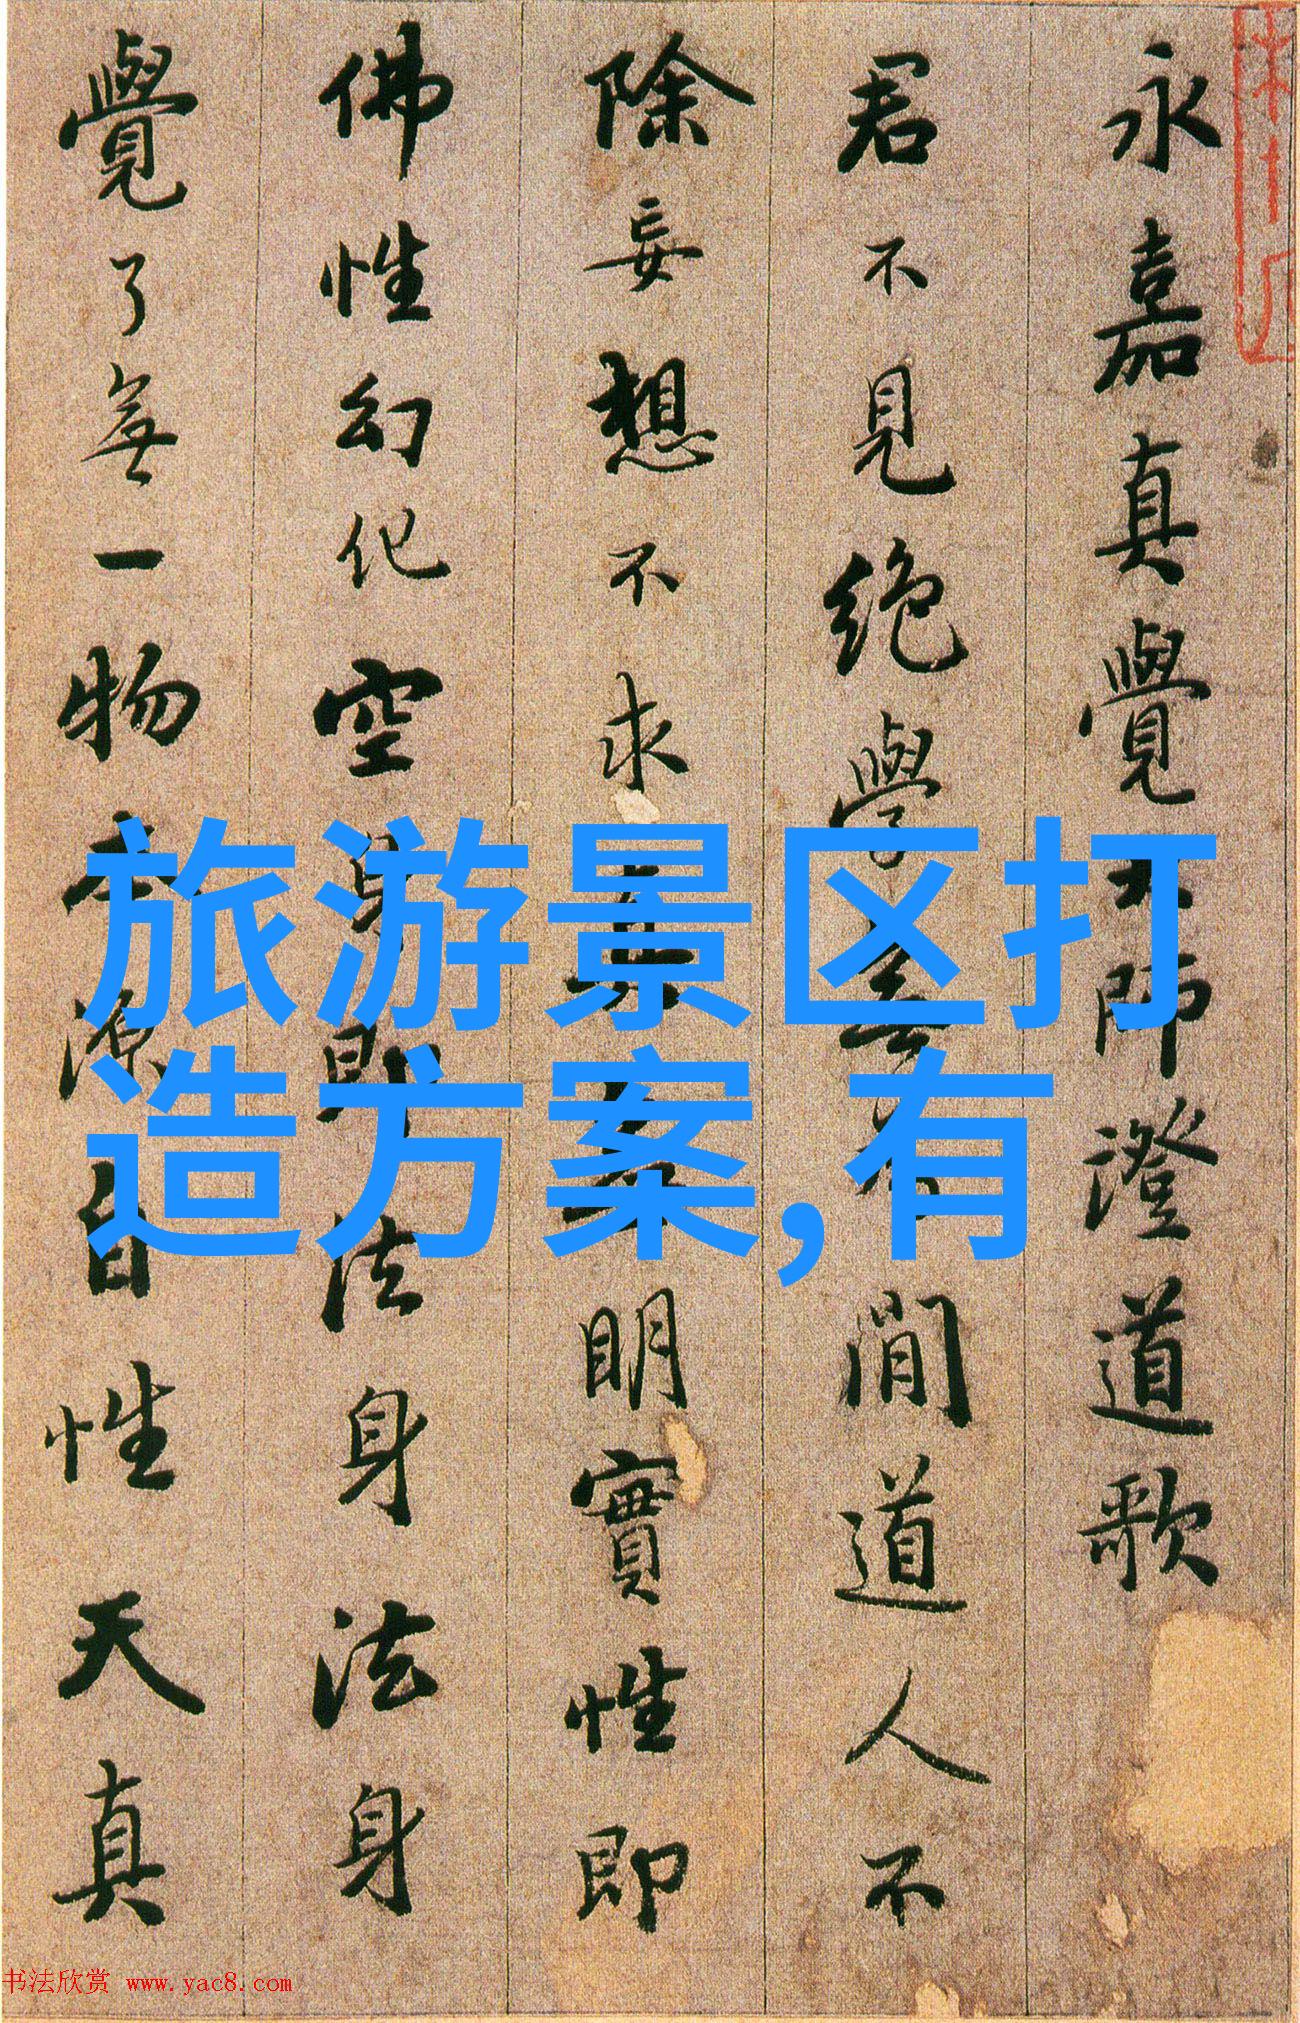 永嘉真覺師澄道歌
君不見絶學閒道人不
除妄想不求明實性即
佛性幻化空身即法身法身
覺了無一物本源自性天真
旅游景区打
造方案,有
书法欣赏 www.yac8.com